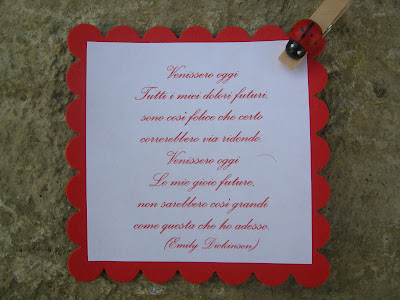 Venissero oggi
Tutti i miei dolori futuri,
sono così felice che certo
correrebbero via ridendo.
Venissero oggi
Le mie gioie future,
non sarebbero così grandi
come questa che ho adesso.
(Emily Dickinson)